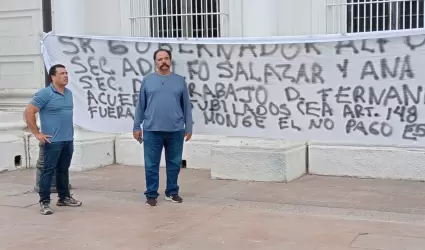 SR GOBERNADOR ALF
SEC ADOLFO SALAZAR Y ANA
SEC. DE TRABAJO D. FERNAN
ACUER JUBILADOS CEA ART. 148
FUERA MONGE EL NO PAGO ES